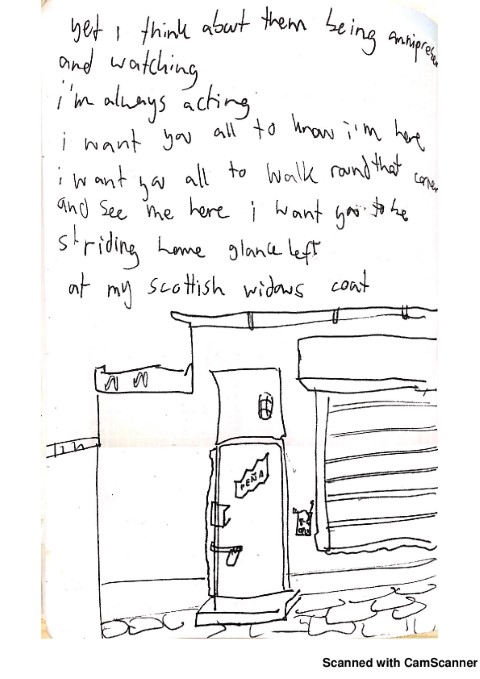 yet i think about them being omnipresen
and watching
i'm always acting
i want you all to know i'm here
i want you all to walk round that corner
and see me here i want you to be
striding home glance left
at my scottish widows coat
PEÑA
Scanned with CamScanner